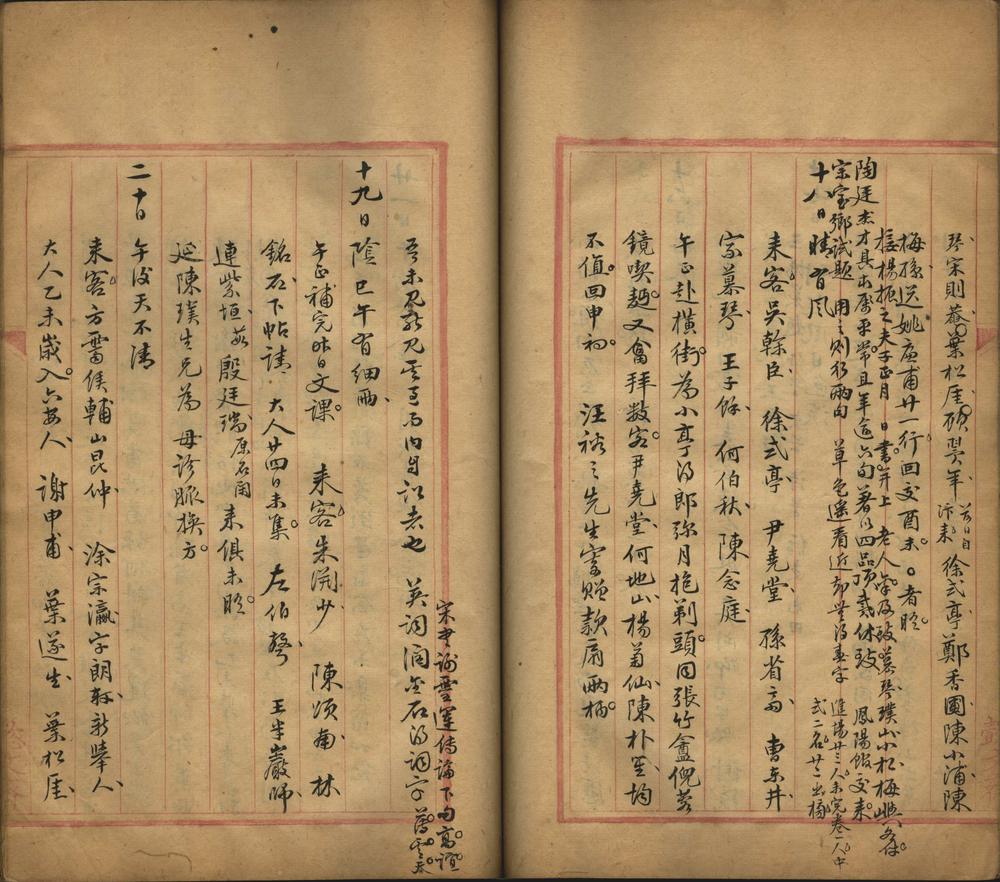 琴宋則葊葉松厓碩卿年 前日自汴來 徐式亭鄭香圃陳小浦陳
梅孫送姚 甫廿一行回交酉未 者晤
接楊振之夫子正月 日書并上 老人 及致慕琴璞山小松梅
陶廷杰才具本屬平常且年逾六旬著以四品頂戴休致 鳳陽 交來
宗室鄉試題 用之則行兩句 草色遙看近却無得春字 進場廿三人未完卷一人中式二名廿二出榜
十八日晴有風
來客吳幹臣 徐式亭 尹堯堂 孫省齋 曹東井
宗慕琴 王子餘 何伯秋 陳念庭
午正赴橫街為小亭得郎彌月抱剃頭同張竹盦倪 
鏡喫麪又會拜數客尹堯堂何地山楊菊仙陳朴 均
不值回申初 汪裕之先生寄贈款扇兩柄
吾未見能見其過而內自訟者也 英詞潤金石得詞字
宋書謝靈運傳論下句高誼薄雲天
十九日陰巳午有細雨
午正補完昨日文課 來客朱淵少 陳頌南 林
銘石下帖請 大人廿四日未集 左伯琴 王半巖師
連紫垣 殷廷瑞原名 來俱未晤
延陳璞生兄為 母診脈換方
二十日 午後天不清
來客方 侯輔山昆仲 涂宗瀛字朗軒新舉人
大人乙未歲入六安人 謝申甫 葉遂生 葉松厓